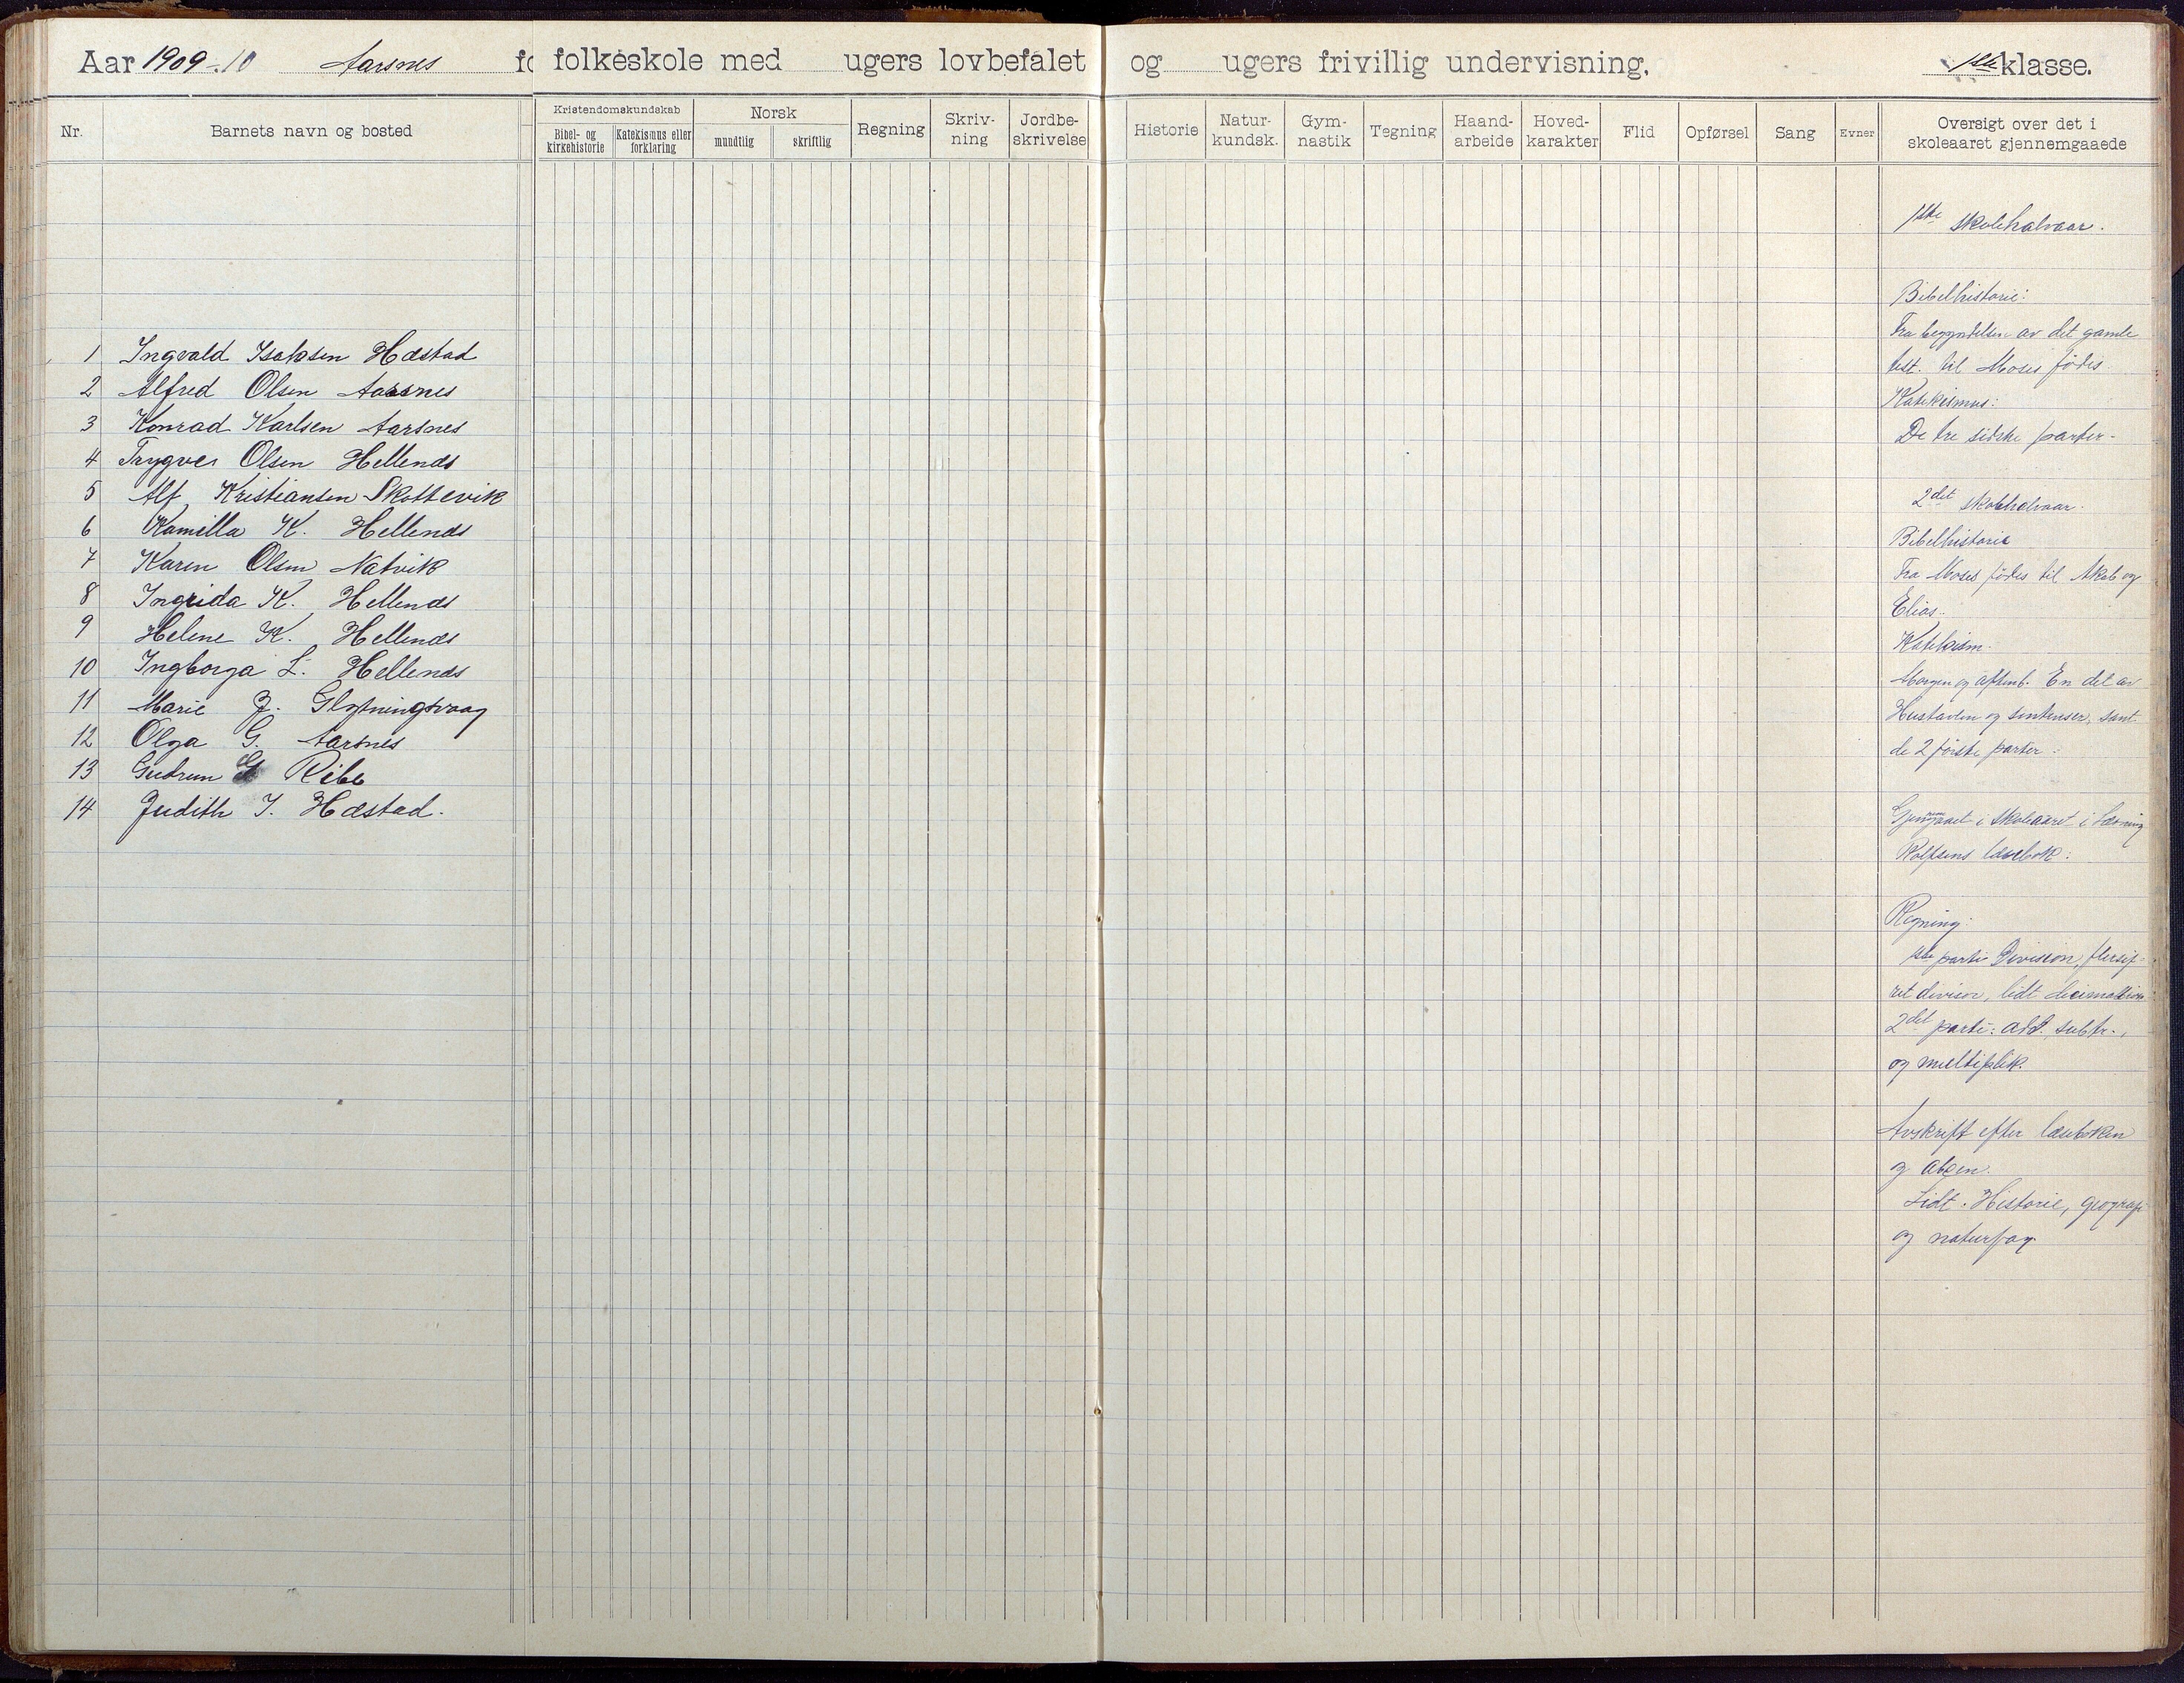 Aar 1909-10 Aarsnes folkeskole med ugers lovbefalet og ugers frivillig undervisning. 1ste klasse.
Nr. Barnets navn og bosted
Kristendomskundskab
Bibel- og kirkehistorie
Katekismus eller forklaring
Norsk
mundtlig
skriftlig
Regning
Skriv-
ning
Jordbe-
skrivelse
Historie
Natur-
kundsk.
Gym-
nastik
Tegning
Haand-
arbeide
Hoved-
karakter
Flid
Opførsel
Sang
Evner
Oversigt over det i
skoleaaret gjennemgaaede
1 Ingvald Isaksen Hæstad
2 Alfred Olsen Aarsnes
3 Konrad Karlsen Aarsnes
4 Trygve Olsen Hellenes
5 Alf Kristiansen Skottevik
6 Kamilla K. Hellenes
7 Karen Olsen Natvik
8 Ingrida K. Hellenes
9 Helene K. Hellenes
10 Ingborga L. Hellenes
11 Marie J.
12 Olga G. Aarsnes
13 Gudrun G Ribe
14 Judith I. Hæstad.
1ste skolehalvaar.
Bibelhistorie:
Fra begyndelsen av det gamle
test. til Moses fødes
Katekismus:
De tre sidste parter.
2det skolehalvaar.
Bibelhistorie
Fra Moses fødes til Akab og
Elias.
Katekism.
Morgen og aftenb. En del av
Hustavlen og sentenser, samt
de 2 første parter.
Gjennemgaaet i skoleaaret i læsning
Rolfsens læsebok:
Regning
1ste parti Division, flersif-
ret divisor, lidt
2det parti: add. subtr.,
og multiplik.
Avskrift efter læseboken
og abcen.
Lidt Historie, geografi
og naturfag